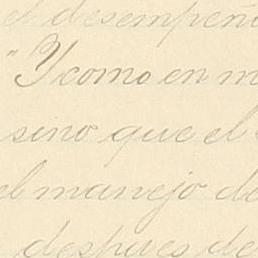 el desempeñ
"Y como en m
sino que el
el manejo de
despues de